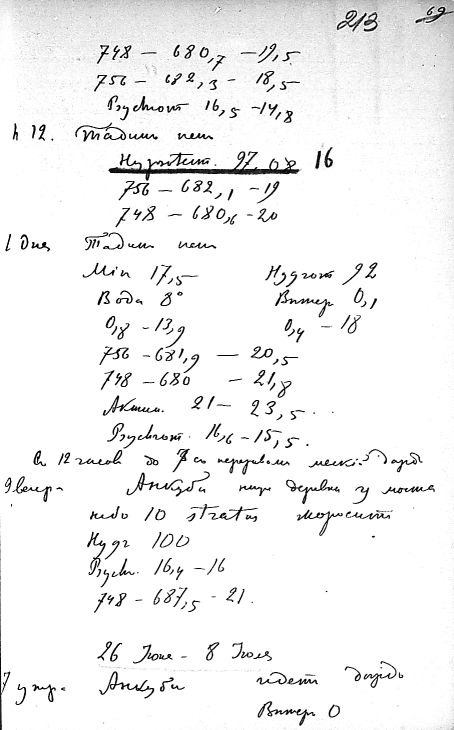 213 69
748 — 680,7 — 19,5
756 — 682,3 — 18,5
Psychrom 16,5 — 14,8
h 12.
97,08 16
756 — 682,1 — 19
748 — 680,6 — 20
1 Дня
Min 17,5 92
Вода 8° Ветер 0,1
0,8 — 13,9 0,4 — 18
756 — 681,9 — 20,5
748 — 680 — 21,8
Актин. 21 — 23,5
Psychrom. 16,6 — 15,5.
12 часов до 7 с перерывами мелкий дождь
9 вечер. Анкуби деревни у моста
небо 10 stratus моросит
Hygr 100
Psych. 16,4 — 16
748 — 687,5 — 21.
26 Июня — 8 Июля
7 утр. Анкуби идет дождь
Ветер 0